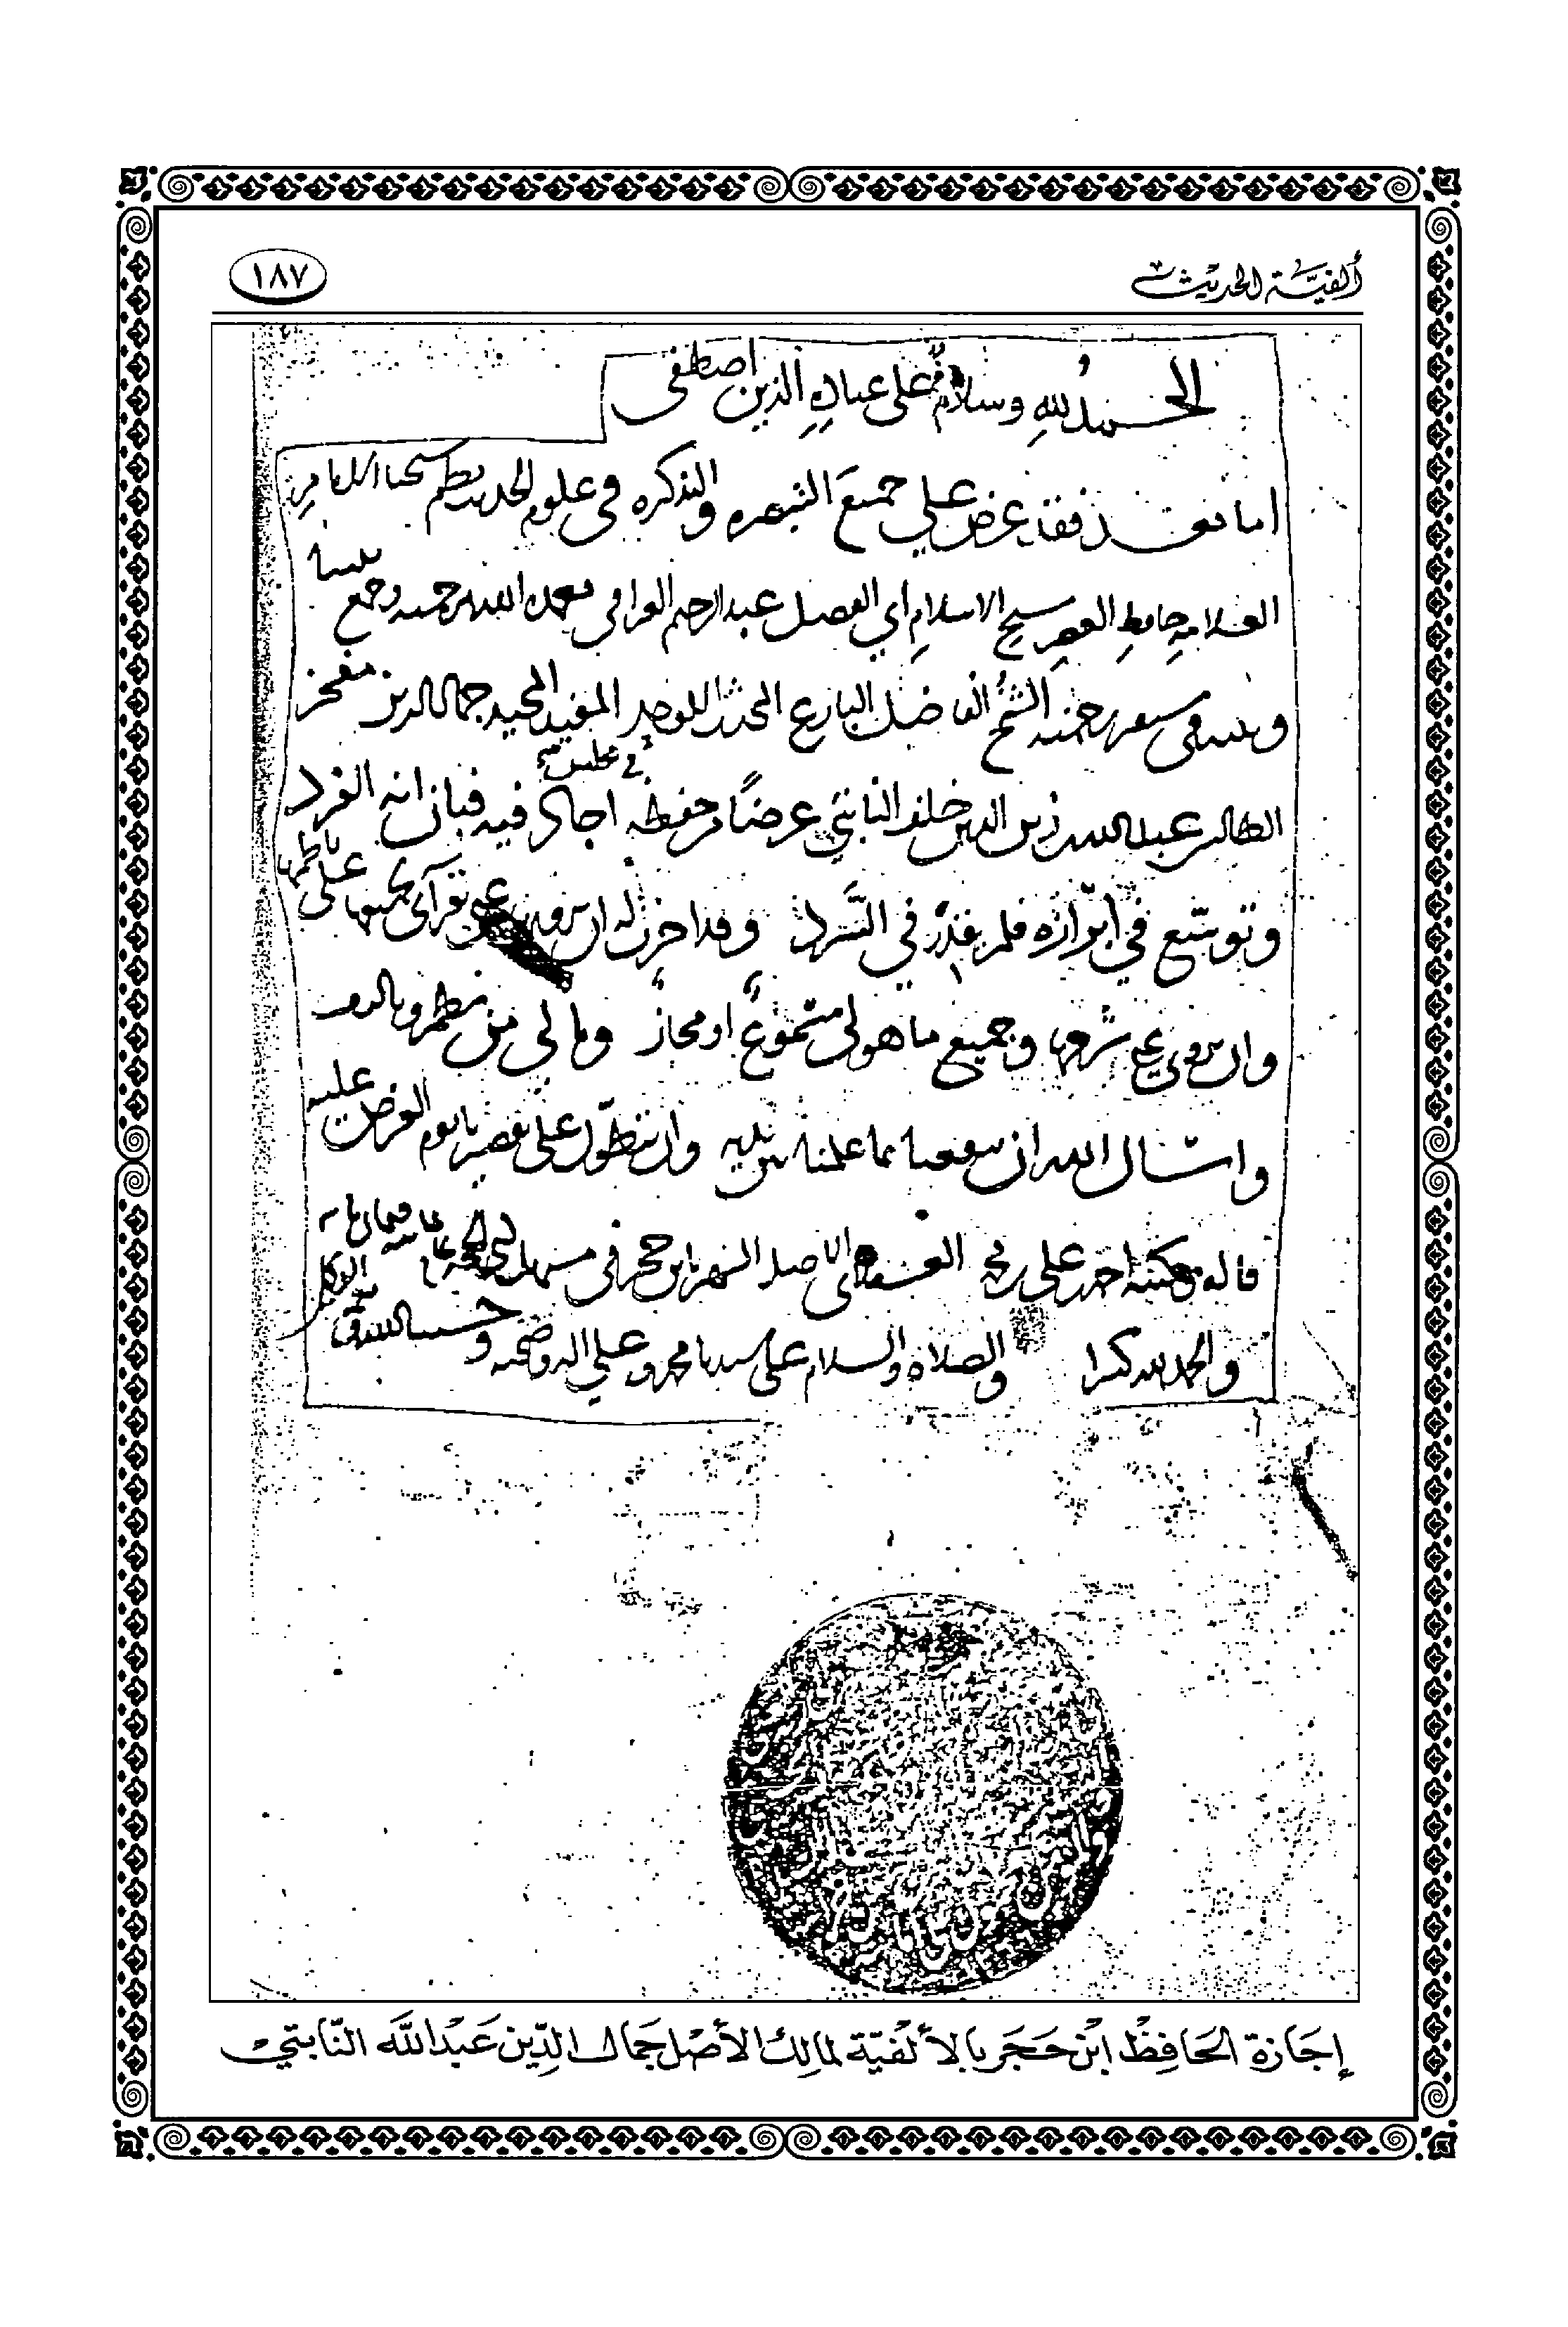 ألفية الحديث
١٨٧
الحمد لله وسلام على عباده الذين اصطفى
اما بعد فقد عرض علي جميع التبصره والتذكره في علوم الحديث نظم شيخنا الامام
العلامه حافظ العصر شيخ الاسلام ابي الفضل عبد الرحيم العراقي تغمده الله برحمته وجمع بيننا
وبينه في مستقر رحمته الشيخ الفاضل البارع المحدث الاوحد المفيد المجيد جمال الدين مفخر
الطالبين عبد الله بن زين الدين خلف النابتي عرضا من حفظه في مجلس اجاد فيه فبان انه الفرد
وتوسع في ابرازه فلم يقدر في السرد وقد اجزت له ان يرويها عني بقراءتي لجميعها على ناظمها
وان يروي عني شرحها وجميع ما هو لي مسموع او مجاز وما لي من نظم وتاليف
واسال الله ان ينفعنا بما علمنا بمنه وان يتطول على تقصيرنا يوم العرض عليه
قاله وكتبه احمد بن علي بن محمد العسقلاني الاصل الشهير بابن حجر في مستهل ذي الحجة عام
والحمد لله كثيرا والصلاة والسلام على سيدنا محمد وعلى اله وصحبه وحسبنا الله ونعم الوكيل
إجازة الحافظ ابن حجر بالألفية لمالك الأصل جمال الدين عبد الله النابتي